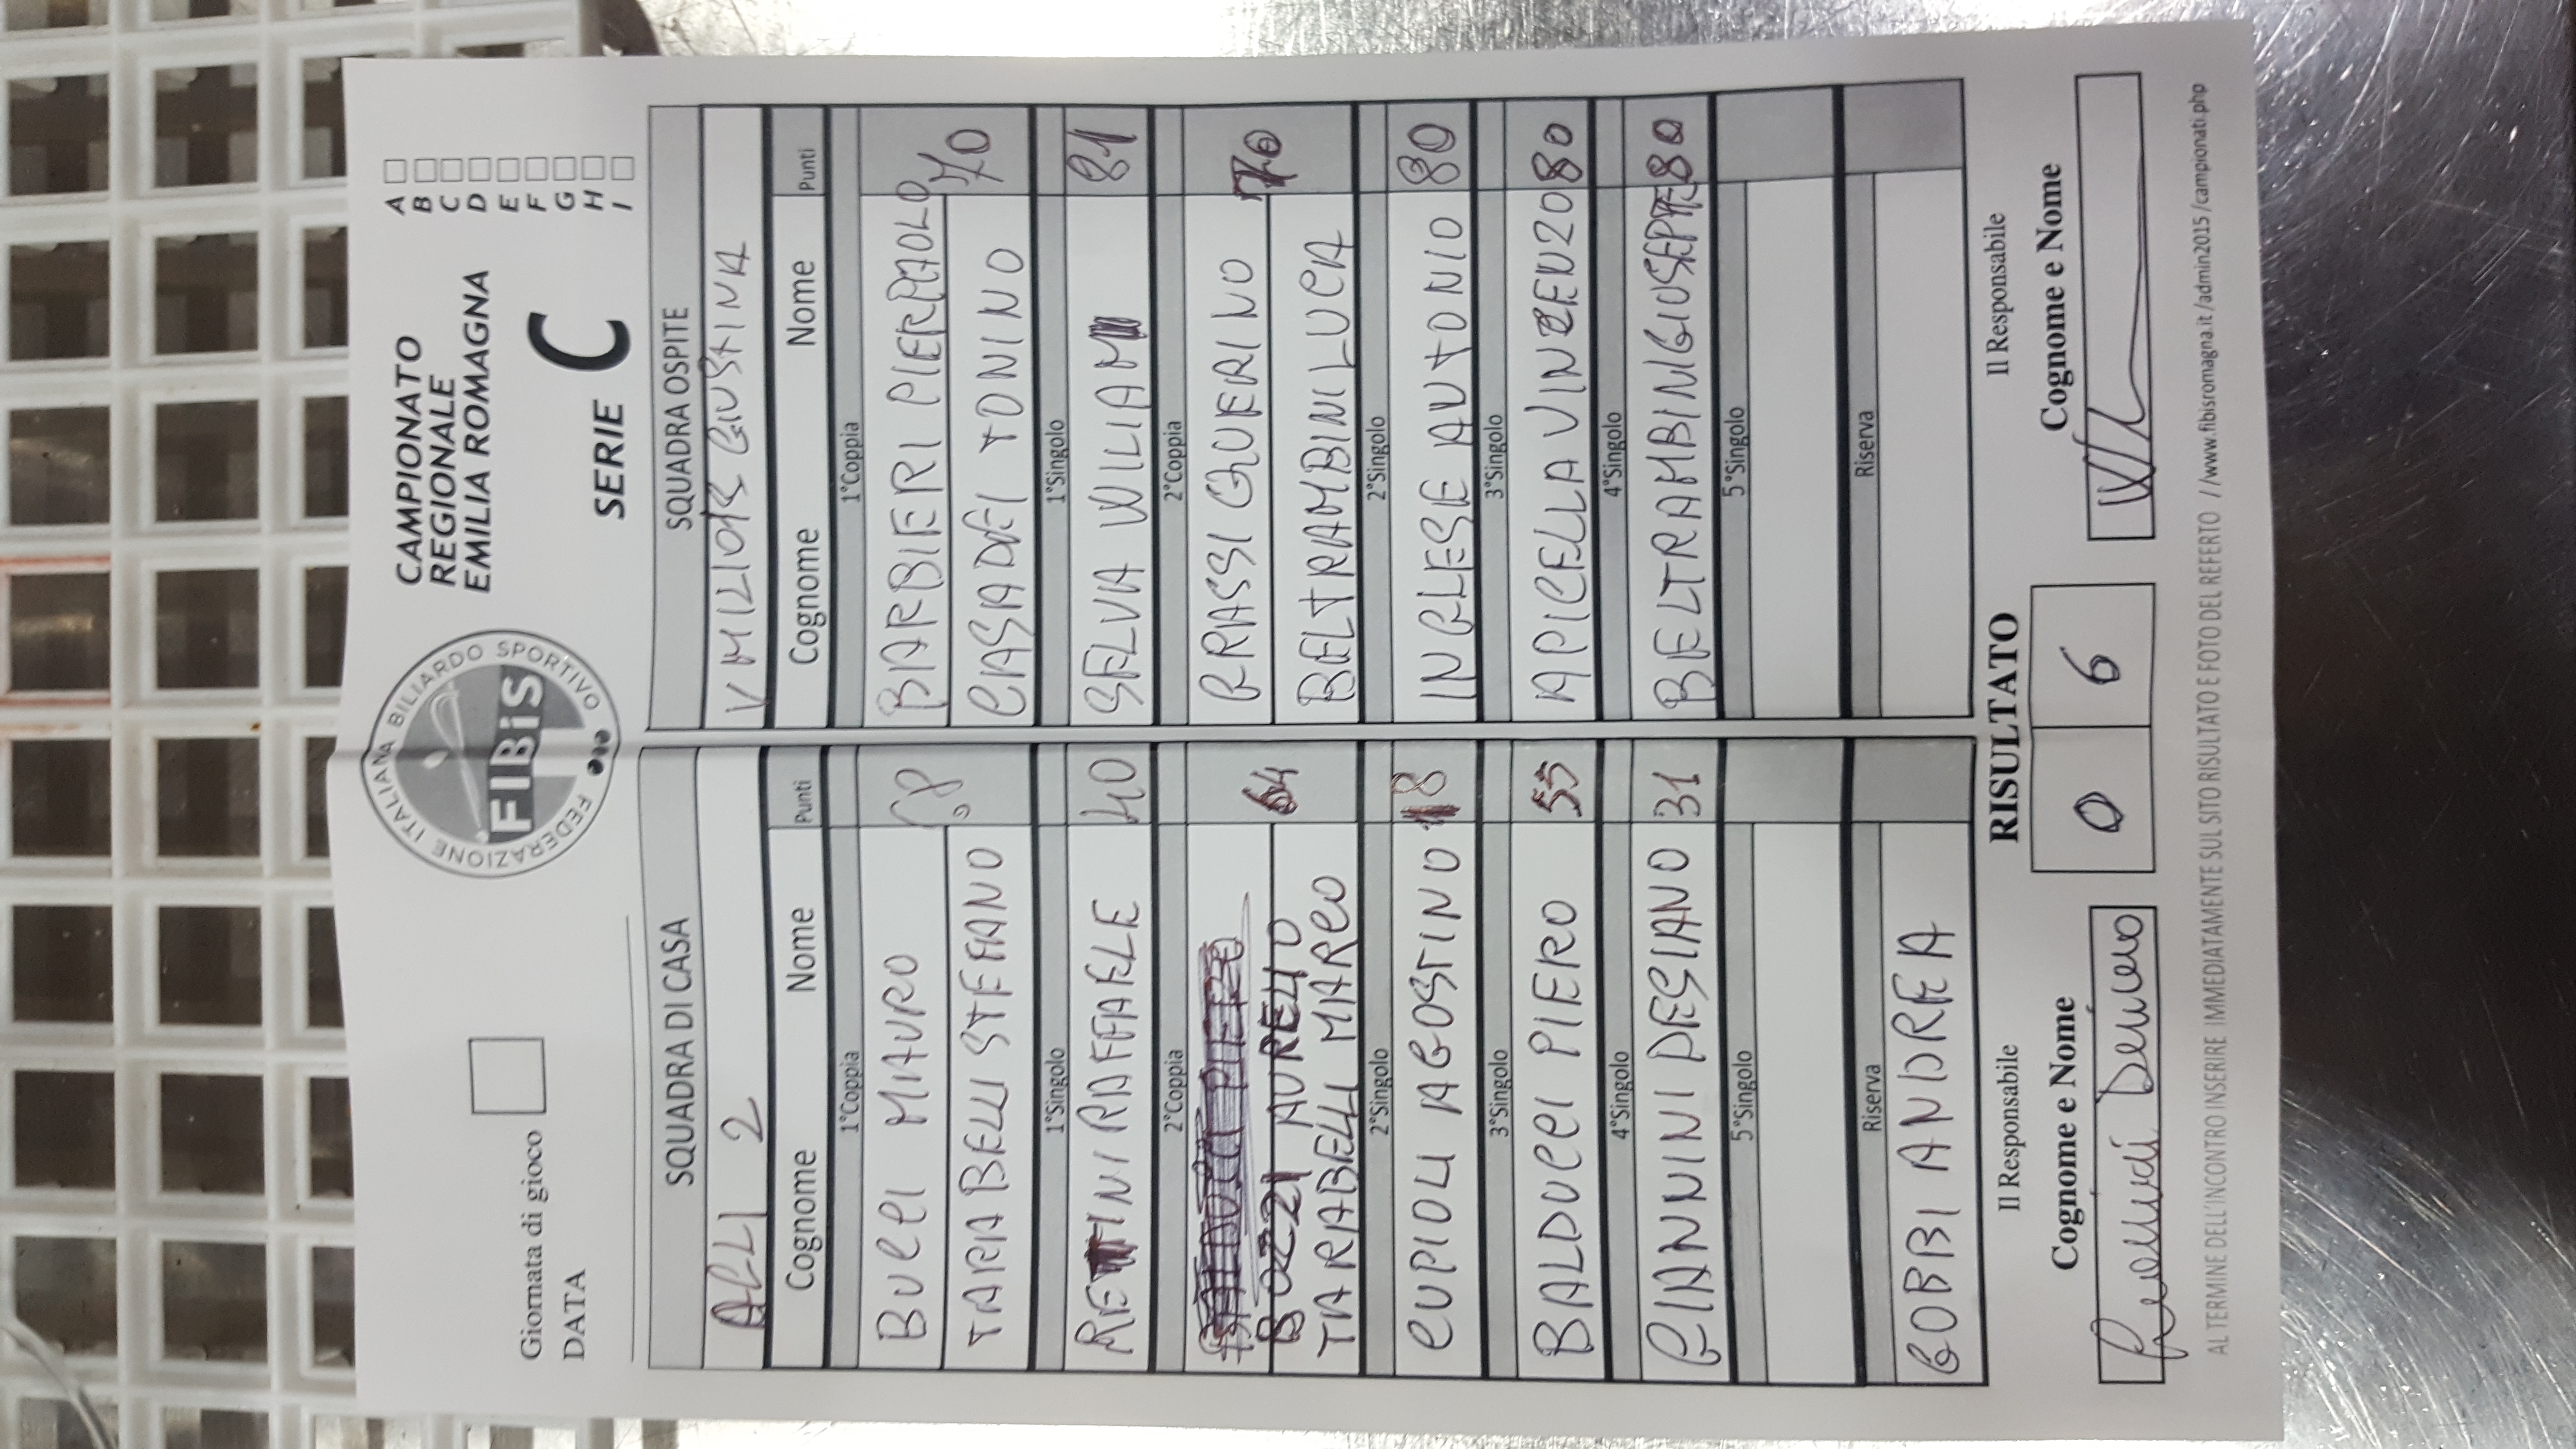 Giornata di gioco
DATA
FEDERAZIONE ITALIANA BILIARDO SPORTIVO
FIBiS
CAMPIONATO
REGIONALE
EMILIA ROMAGNA
SERIE C
A
B
C
D
E
F
G
H
I
SQUADRA DI CASA
ACLI 2
Cognome Nome Punti
1°Coppia
BUCCI MAURO
TARABELLI STEFANO
1°Singolo
RETTINI RAFFAELE 40
2°Coppia
BOZZI AURELIO 64
TARABELLI MARCO
2°Singolo
CUPIOLI AGOSTINO 18
3°Singolo
BALDUCCI PIERO 55
4°Singolo
GIANNINI DESIANO 31
5°Singolo
Riserva
GOBBI ANDREA
SQUADRA OSPITE
GIUSTINA
Cognome Nome Punti
1°Coppia
BARBIERI PIERPAOLO 70
CASADEI TONINO
1°Singolo
SELVA WILIAM 81
2°Coppia
GRASSI GUERINO 70
BELTRAMBINI LUCA
2°Singolo
INGLESE ANTONIO 80
3°Singolo
APICELLA VINZENZO 80
4°Singolo
BELTRAMBINI GIUSEPPE 80
5°Singolo
Riserva
Il Responsabile
Cognome e Nome
RISULTATO
0 6
Il Responsabile
Cognome e Nome
AL TERMINE DELL'INCONTRO INSERIRE IMMEDIATAMENTE SUL SITO RISULTATO E FOTO DEL REFERTO //www.fibisromagna.it/admin2015/campionati.php